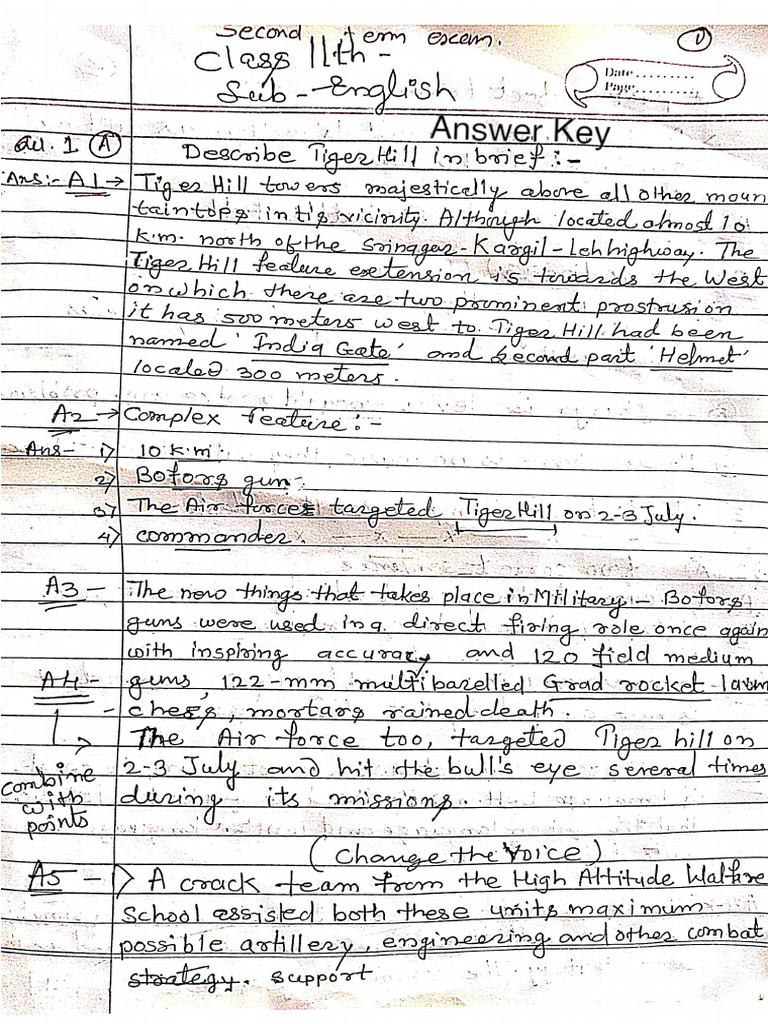 Second term exam.
①
Class 11th -
Sub - English
Date..........
Page..........
Answer Key
Qu. 1 (A) Describe Tiger Hill in brief :-
Ans :- A1 → Tiger Hill towers majestically above all other moun
taintops in tis vicinity. Although located almost 10
k.m. north of the Srinager-Kargil-Leh highway. The
Tiger Hill feature extension is towards the West
on which there are two prominent prostrusion
it has 500 meters west to Tiger Hill had been
named 'India Gate' and second part 'Helmet'
located 300 meters.
A2 → Complex feature :-
Ans - 1) 10 k.m.
2) Bofors gun
3) The Air forces targeted Tiger Hill on 2-3 July.
4) commander
A3 - The new things that takes place in Military - Bofors
guns were used in a direct firing role once again
with inspiring accuracy and 120 field medium
A4 - guns, 122-mm multibarelled Grad rocket laun
- chers, mortars rained death.
The Air force too, targeted Tiger hill on
2-3 July and hit the bull's eye several times
combine
with
points
during its missions.
(Change the Voice)
A5 - 1) A crack team from the High Altitude Walfare
School assisted both these units maximum
possible artillery, engineering and other combat
strategy. support